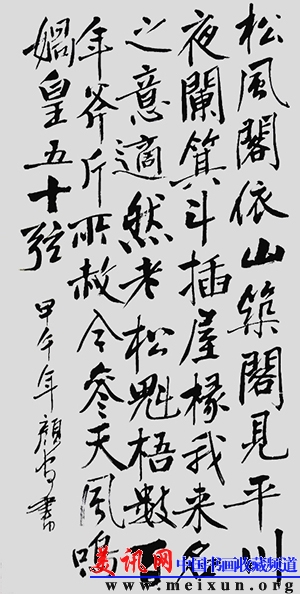 松風閣依山築閣見平川
夜闌箕斗插屋椽我來名
之意適然老松魁梧數百
年斧斤所赦今參天風鳴
媧皇五十弦
甲午年顏書
美讯网
中国书画收藏频道
www.meixun.org